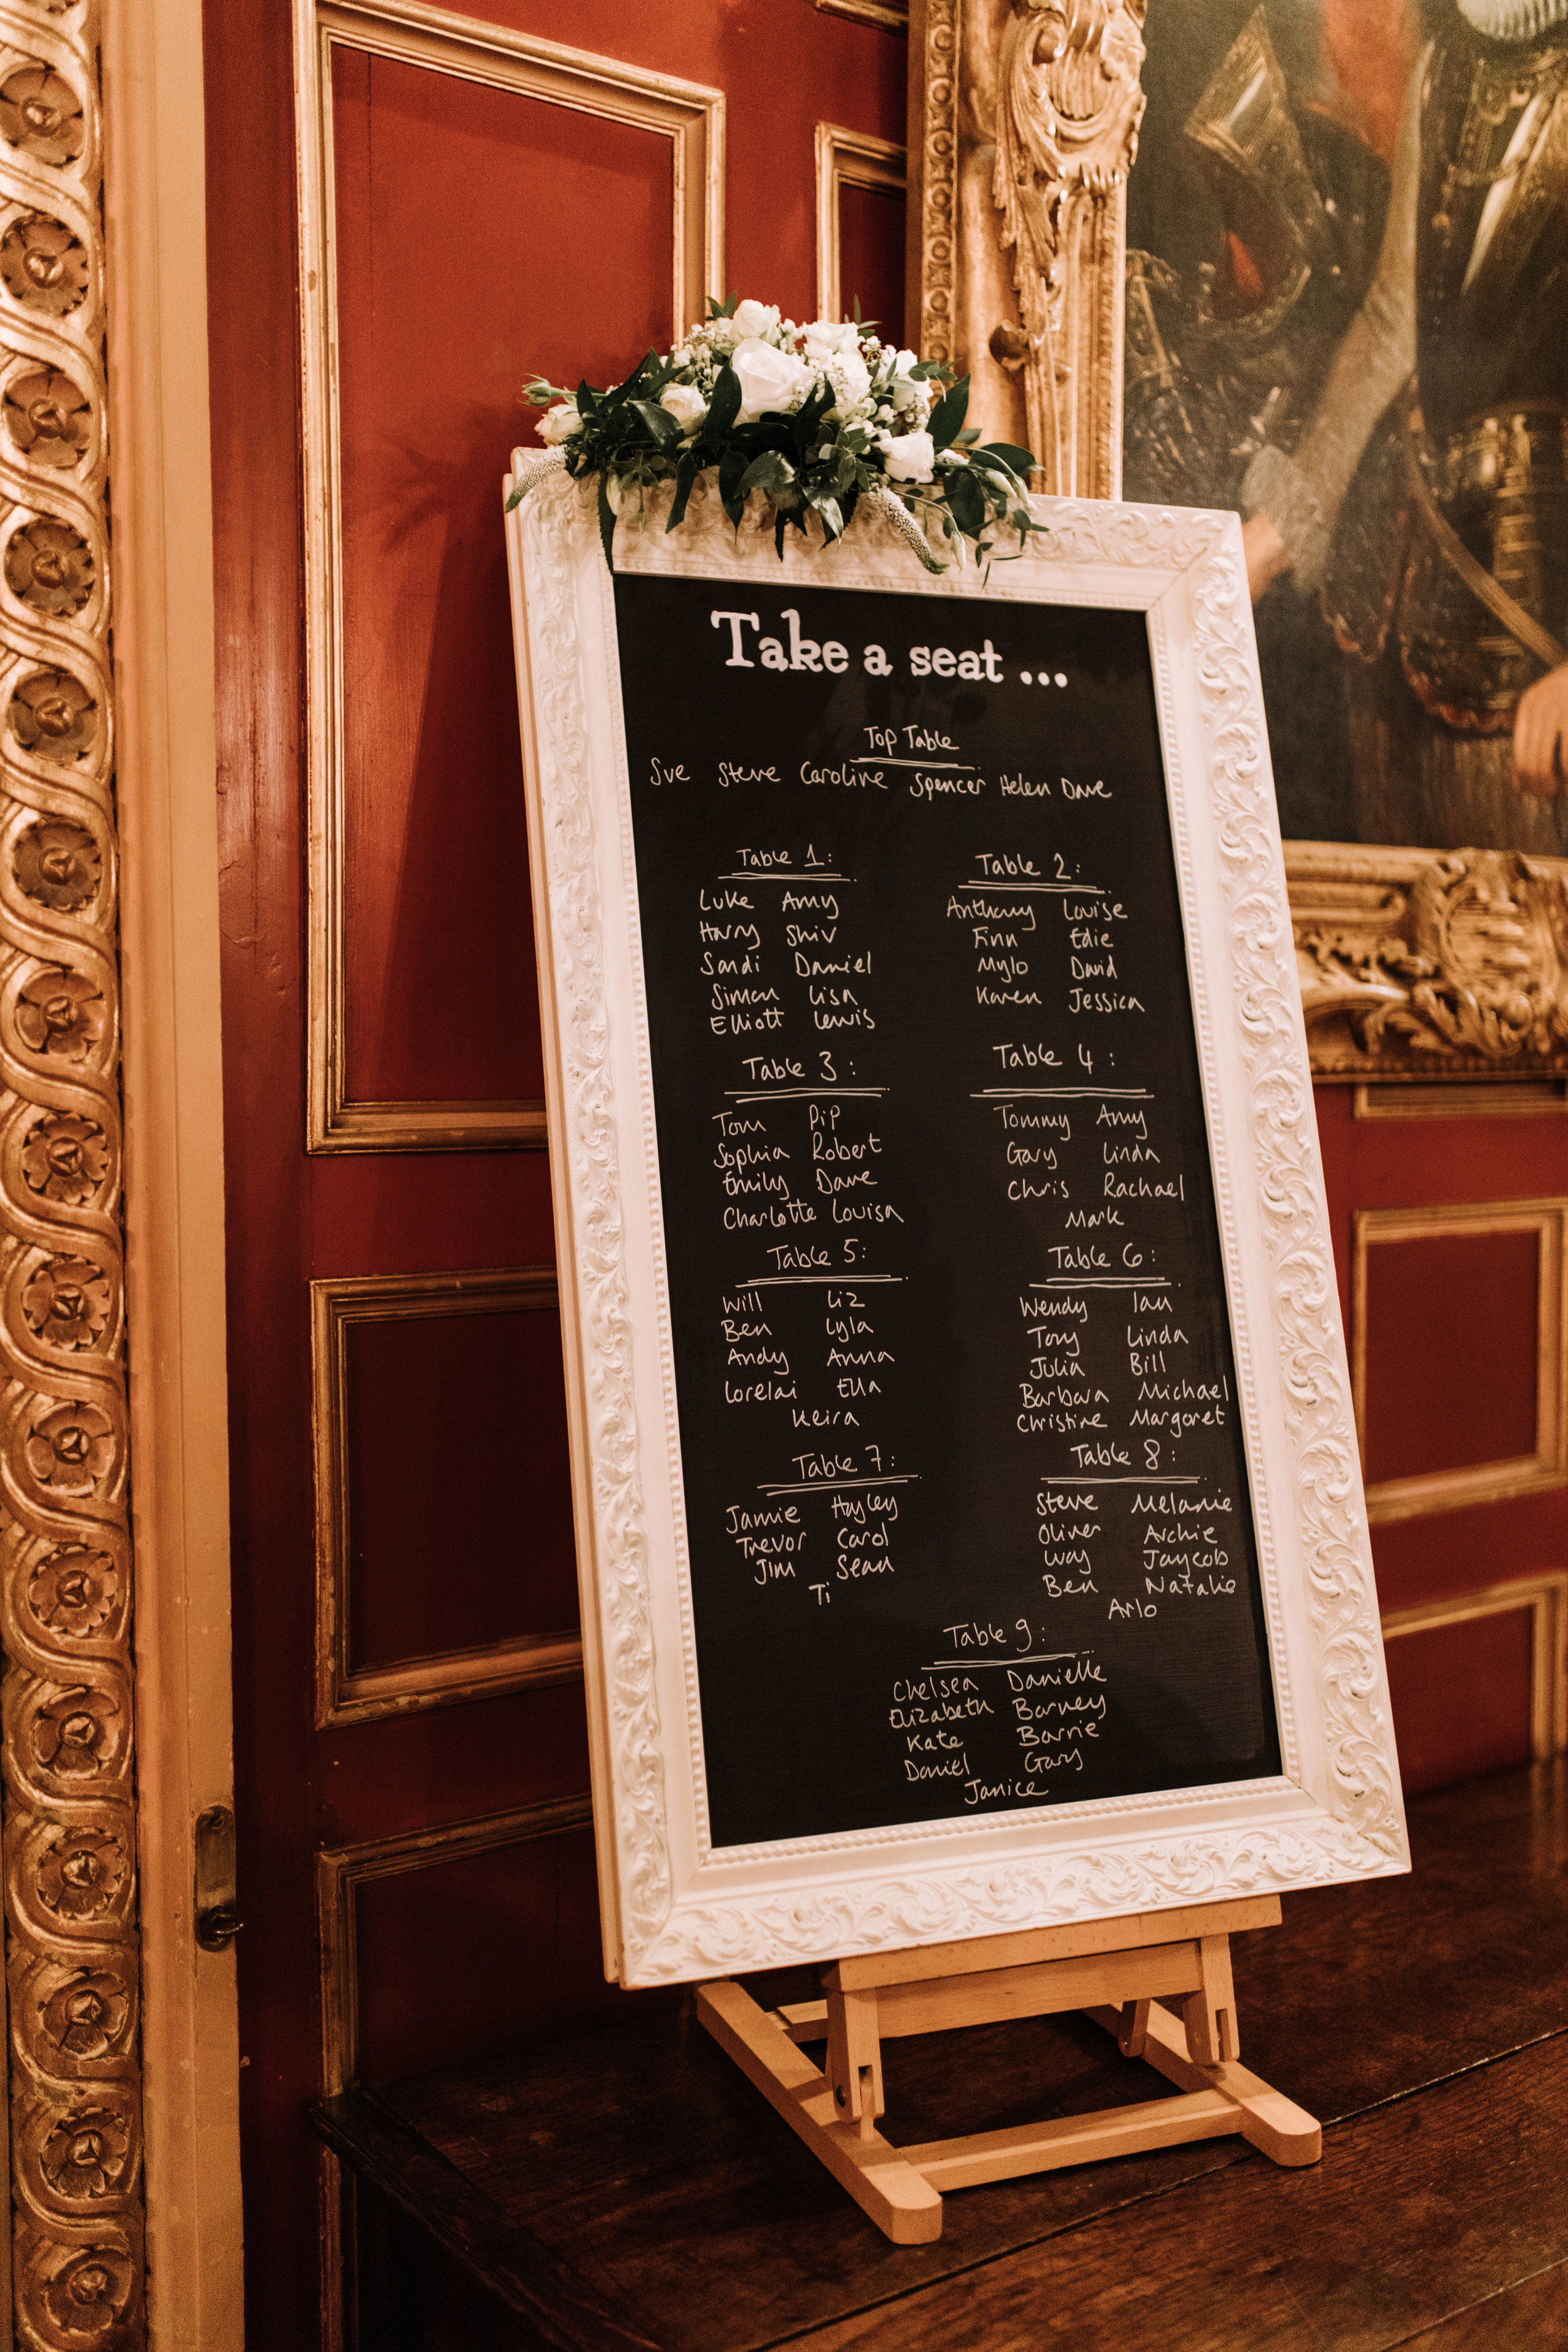 Take a seat ...
Top Table
Sue Steve Caroline Spencer Helen Dave
Table 1:
Luke Amy
Harry Shiv
Sandi Daniel
Simon Lisa
Elliott Lewis
Table 2:
Anthony Louise
Finn Edie
Mylo David
Karen Jessica
Table 3:
Tom Pip
Sophia Robert
Emily Dave
Charlotte Louisa
Table 4:
Tommy Amy
Gary Linda
Chris Rachael
Mark
Table 5:
Will Liz
Ben Lyla
Andy Anna
Lorelai Ella
Keira
Table 6:
Wendy Ian
Tony Linda
Julia Bill
Barbara Michael
Christine Margaret
Table 7:
Jamie Hayley
Trevor Carol
Jim Sean
Ti
Table 8:
Steve Melanie
Oliver Archie
Way Jaycob
Ben Natalie
Arlo
Table 9:
Chelsea Danielle
Elizabeth Barney
Kate Barrie
Daniel Gary
Janice